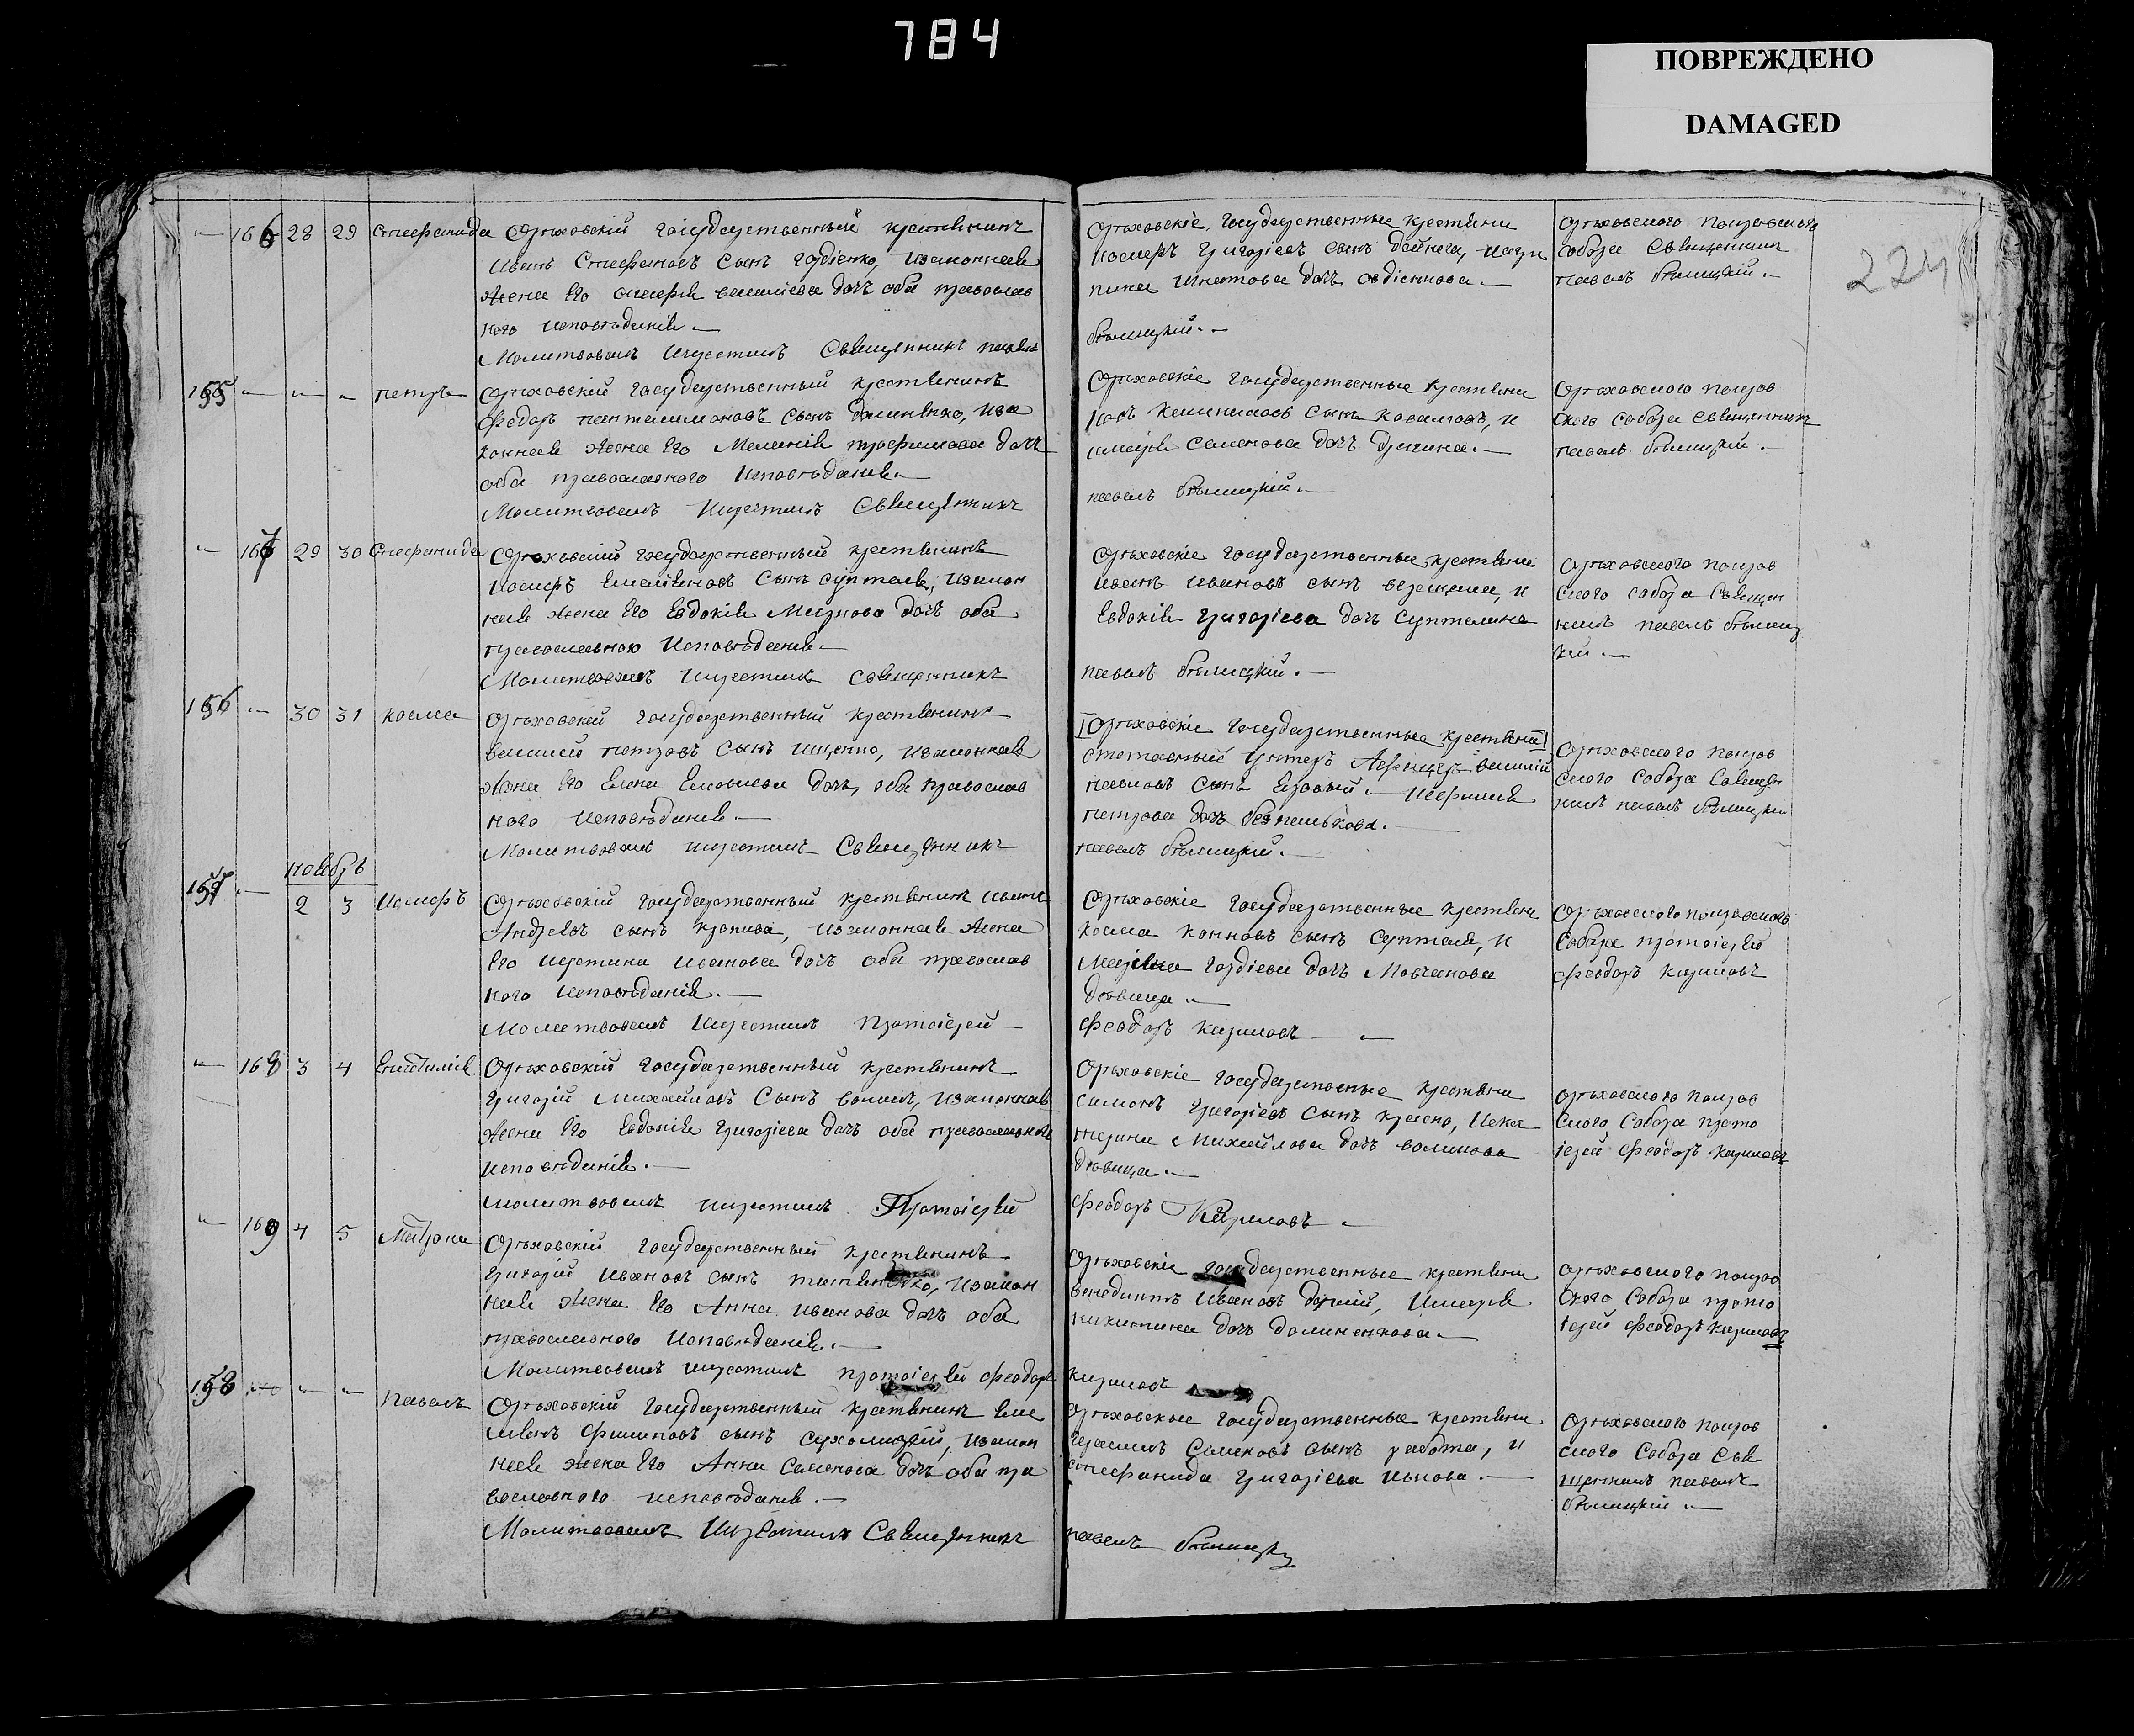 784
ПОВРЕЖДЕНО
DAMAGED
224
— 166 28 29 Стефанида
Орѣховскій государственный крестянинъ
Иванъ Стефановъ сынъ Гордіенко, изаконная
жена его Василіева дочь оба православ
ного исповѣданія. —
Молитвовалъ икрестилъ священникъ Павелъ
Орѣховскіе государственные крестяни
Іосифъ Григоріевъ сынъ Дейнега, иагри
пина Игнатова дочь Овдіенкова. —
Бѣлицкій. —
Орѣховского покровского
собора священникъ
Павелъ Бѣлицкій. —
155 — — — Петръ
Орѣховскій государственный крестянинъ
Федоръ Пантелимоновъ сынъ Долинънко, иза
конная жена его Меланія Трофимова дочь
оба православного исповѣданія. —
Молитвовалъ икрестилъ священникъ
Орѣховскіе государственные крестяни
сынъ Ковалювъ, и
Семенова дочь —
Павелъ Бѣлицкій. —
Орѣховского покров
ского собора священникъ
Павелъ Бѣлицкій. —
— 167 29 30 Стефанида
Орѣховскій государственный крестянинъ
Іосифъ Емеліяновъ сынъ Супталя, изакон
ная жена его Евдокія Маркова дочь оба
православною исповѣданія —
Молитвовалъ икрестилъ священникъ
Орѣховскіе государственные крестяни
Иванъ Ивановъ сынъ Верещака, и
Евдокія Григоріева дочь Супталина
Павелъ Бѣлицкій. —
Орѣховского покров
ского собора священ
никъ Павелъ Бѣлиц
кій. —
156 — 30 31 Косма
Орѣховскій государственный крестянинъ
Василій Петровъ сынъ Ищенко, изаконная
жена его Елена дочь, оба православ
ного исповѣданія —
Молитвовалъ икрестилъ священникъ
Орѣховскіе государственные крестяни
отставный унтеръ Афицеръ Василій
Павловъ сынъ —
Петрова дочь —
Павелъ Бѣлицкій. —
Орѣховского покров
ского собора священ
никъ Павелъ Бѣлицкій
Ноябрь
157 — 2 3 Іосифъ
Орѣховскій государственный крестянинъ Иванъ
Андреевъ сынъ Кропива, изаконная жена
его Иустина Иванова дочь оба православ
ного исповѣданія. —
Молитвовалъ икрестилъ протоіерей —
Орѣховскіе государственные крестяни
Косма Кононовъ сынъ Супталя, и
Марiна Гордіева дочь Мовчанова
дѣвица. —
Феодоръ Кириловъ —
Орѣховского покровского
собора протоіерей
Феодоръ Кириловъ
— 168 3 4 Епистимія
Орѣховскій государственный крестянинъ
Григорій Михайловъ сынъ Воликъ, изаконная
жена его Евдокія Григоріева дочь оба православной
исповѣданія. —
Молитвовалъ икрестилъ Протоіерей
Орѣховскіе государственые крестяни
Симонъ Григоріевъ сынъ Красно, иека
терина Михайлова дочь Воликова
дѣвица. —
Феодоръ Кириловъ —
Орѣховского покров
ского собора прото
іерей Феодоръ Кириловъ
— 169 4 5 Матрона
Орѣховскій государственный крестянинъ
Григорій Ивановъ сынъ изакон
ная жена его Анна Иванова дочь оба
православного исповѣданія. —
Молитвовалъ икрестилъ протоіерей Феодоръ
Орѣховскіе государственные крестяни
Венедиктъ Ивановъ
Никитина дочь Долиненкова —
Кириловъ —
Орѣховского покров
ского собора прото
іерей Феодоръ Кириловъ
158 — — — Павелъ
Орѣховскій государственный крестянинъ Еме
ліянъ Филиповъ сынъ Сухомлинъ, изакон
ная жена его Анна Семенова дочь оба пра
вославного исповѣданія. —
Молитвовалъ икрестилъ священникъ
Орѣховскые государственные крестяни
Герасимъ Семеновъ сынъ Работа, и
Стефанида Григоріева —
Павелъ Бѣлицкій
Орѣховского покров
ского собора свя
щенникъ Павелъ
Бѣлицкій —